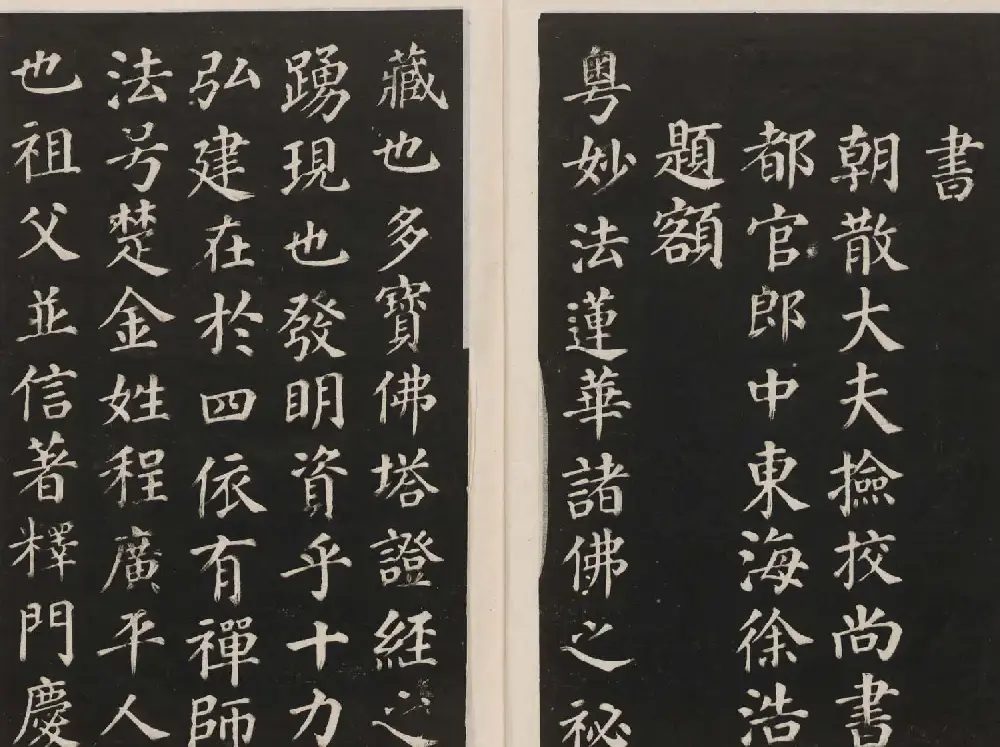 書
朝散大夫撿挍尚書
都官郎中東海徐浩
題額
粵妙法蓮華諸佛之祕
藏也多寶佛塔證經之
踴現也發明資乎十力
弘建在於四依有禪師
法号楚金姓程廣平人
也祖父並信著釋門慶